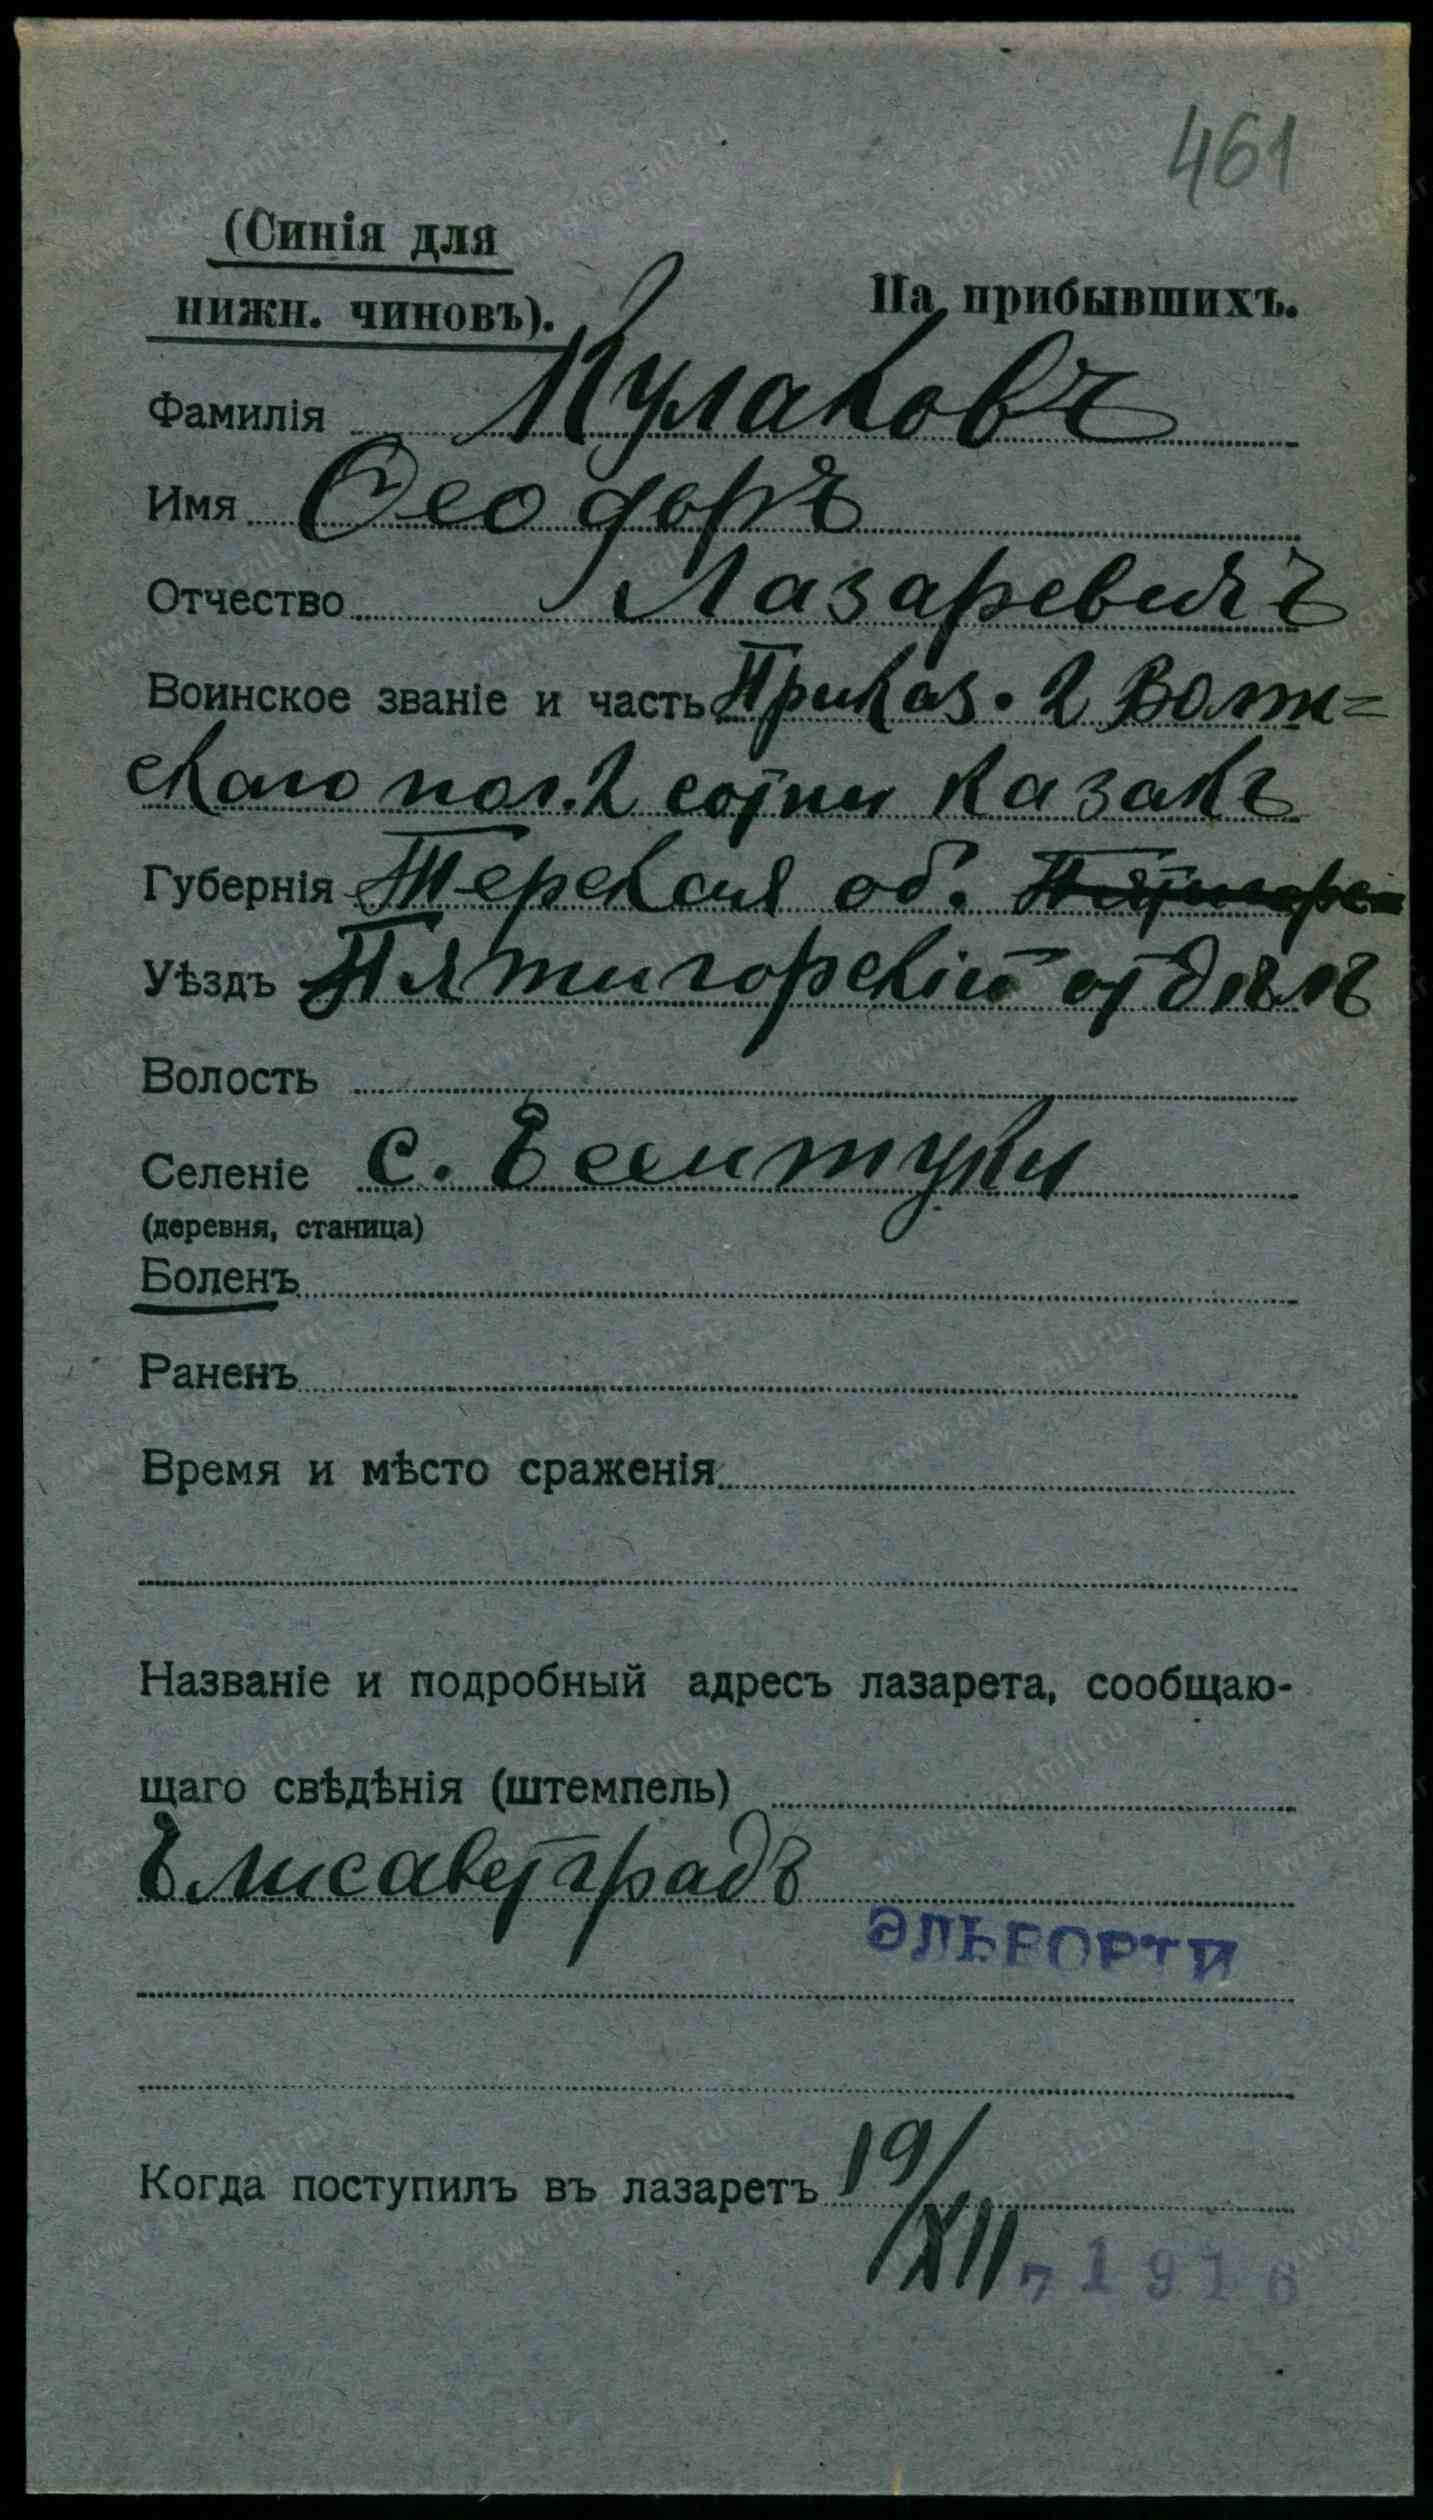 461
(Синія для
нижн. чиновъ).
На прибывшихъ.
Фамилія Кулаковъ
Имя Ѳеодоръ
Отчество Лазаревичъ
Воинское званіе и часть Приказ. 2 Волж=
скаго пол. 2 сотни казакъ
Губернія Терская об. Пятигорс
Уѣздъ Пятигорскій отдѣлъ
Волость
Селеніе с. Ессентуки
(деревня, станица)
Боленъ
Раненъ
Время и мѣсто сраженія
Названіе и подробный адресъ лазарета, сообщаю-
щаго свѣдѣнія (штемпель)
Елисаветградъ
ЭЛЬВОРТИ
Когда поступилъ въ лазаретъ 19/XII 1916
www.gwar.mil.ru